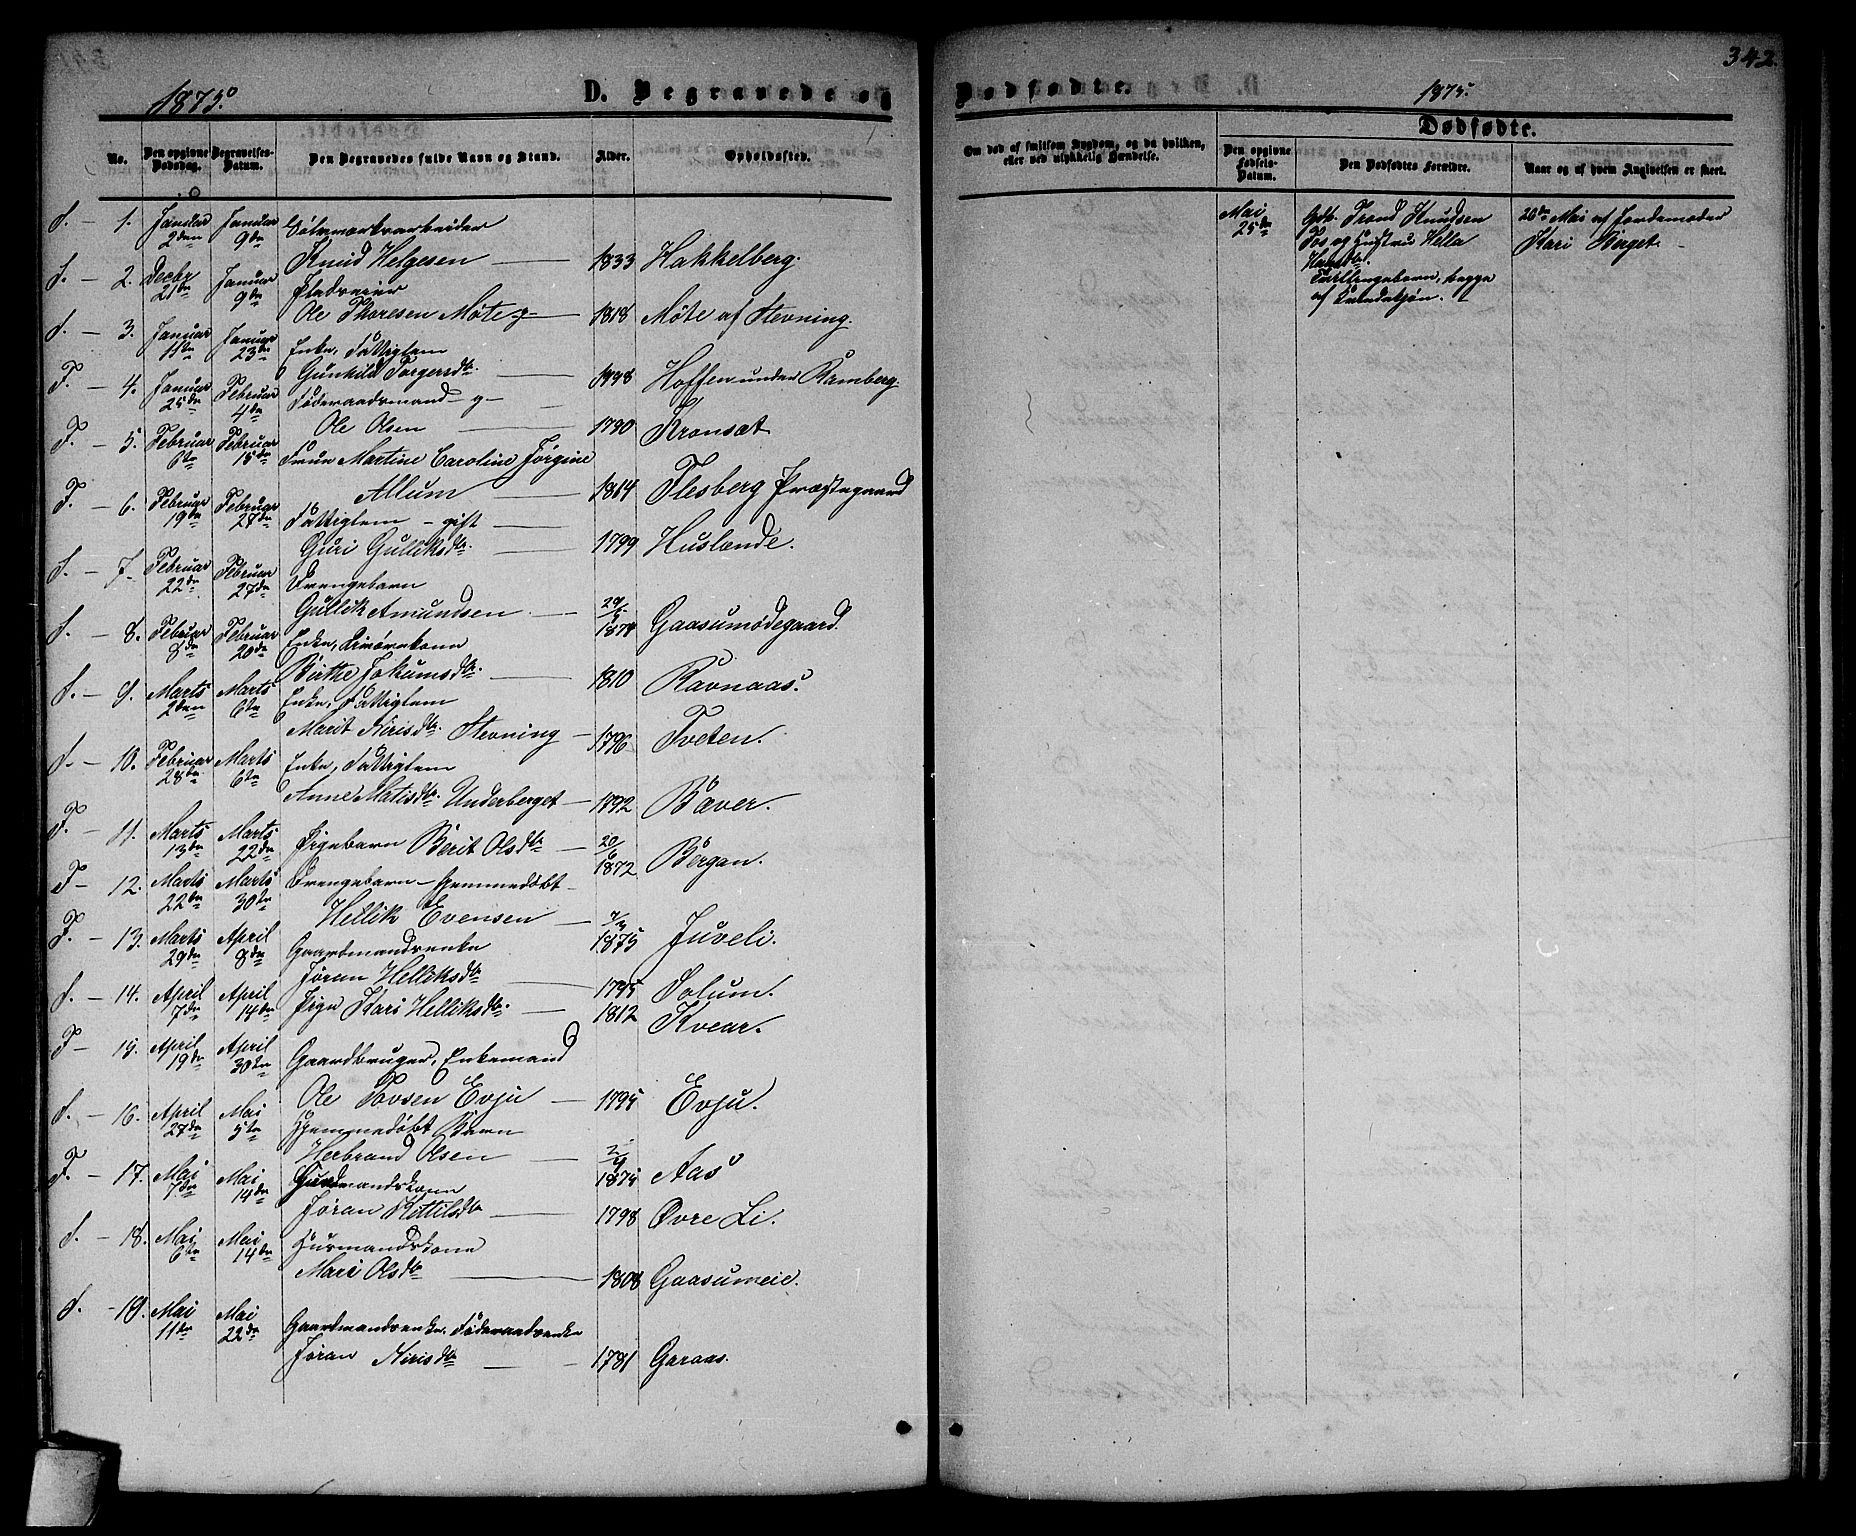 342.
1875. D. Begravede og Dødfødte. 1875.
No. Den opgivne Dødsdag. Begravelses-Datum. Den Begravedes fulde Navn og Stand. Alder. Opholdssted.
Om død af smitsom Sygdom, og da hvilken, eller ved ulykkelig Hændelse.
Dødfødte.
Den opgivne Fødsels-Datum. Den Dødfødtes Forældre. Naar og af hvem Angivelsen er skeet.
S. – 1. Januar 2den Januar 9de Sølvverksarbeider
Knud Helgesen 1833 Hakkelberg.
S. – 2. Decbr 21de Januar 9de Pladseier
Ole Thoresen Møte g 1818 Møte af Stevning.
S. – 3. Januar 11te Januar 23de Enke, Fattiglem
Gunhild Torgersdtr. 1798 Hoffen under Ramberg.
F. – 4. Januar 25de Februar 4de Føderaadsmand – g –
Ole Olsen 1790 Kronsæt
F. – 5. Februar 6te Februar 15de Frue Martine Caroline Jørgine
Allum 1814 Flesberg Præstegaard
F. – 6. Februar 19de Februar 27de Fattiglem – gift
Guri Gulliksdtr. 1799 Huslænde.
S. – 7. Februar 22de Februar 27de Drengebarn
Gullik Amundsen 1874 Gaasumødegaard.
S. – 8. Februar 8de Februar 20de Enke,
Birthe Jokumsdtr. 1810 Ravnaas.
S. – 9. Marts 2den Marts 6te Enke, Fattiglem
Marit Nirisdtr. Stevning – 1796 Tveten.
S. – 10. Februar 28de Marts 6te Enke, Fattiglem
Anne Matisdtr. Underberget – 1792 Bæver.
F. – 11. Marts 13de Marts 22de Pigebarn Berit Olsdtr – 20/6 1872 Bergan.
F – 12. Marts 22de Marts 30te Drengebarn – hjemmedøbt –
Hellik Evensen – 7/3 1875 Juveli.
F. – 13. Marts 29de April 8de Gaardmandsenke
Jøran Helliksdtr 1795 Solum.
S. – 14. April 7de April 14de Pige Kari Helliksdtr. – 1812 Kvear.
F – 15. April 19de April 30te Gaardbruger, Enkemand
Ole Tovsen Evju – 1795 Evju.
S. – 16. April 27de Mai 5te Hjemmedøbt Barn
Herbrand Olsen – 2/4 1875 Aas
F. – 17. Mai 7de Mai 14de Husmandskone
Jøran Kittilsdtr 1798 Øvre Li.
S. – 18. Mai 6te Mai 14de Husmandskone
Mari Olsdtr 1808 Gaasumeie.
S. – 19. Mai 11te Mai 22de Gaardmandsenke. Føderaadsenke
Jøran Nirisdtr 1781 Garaas.
Mai 25de Gdb. Trond Knudsen
Fos og Hustru Hella
Hansdtr.
Tvillingebarn, begge
af Kvindekjøn.
26de Mai af Jordemoder
Kari Berget.